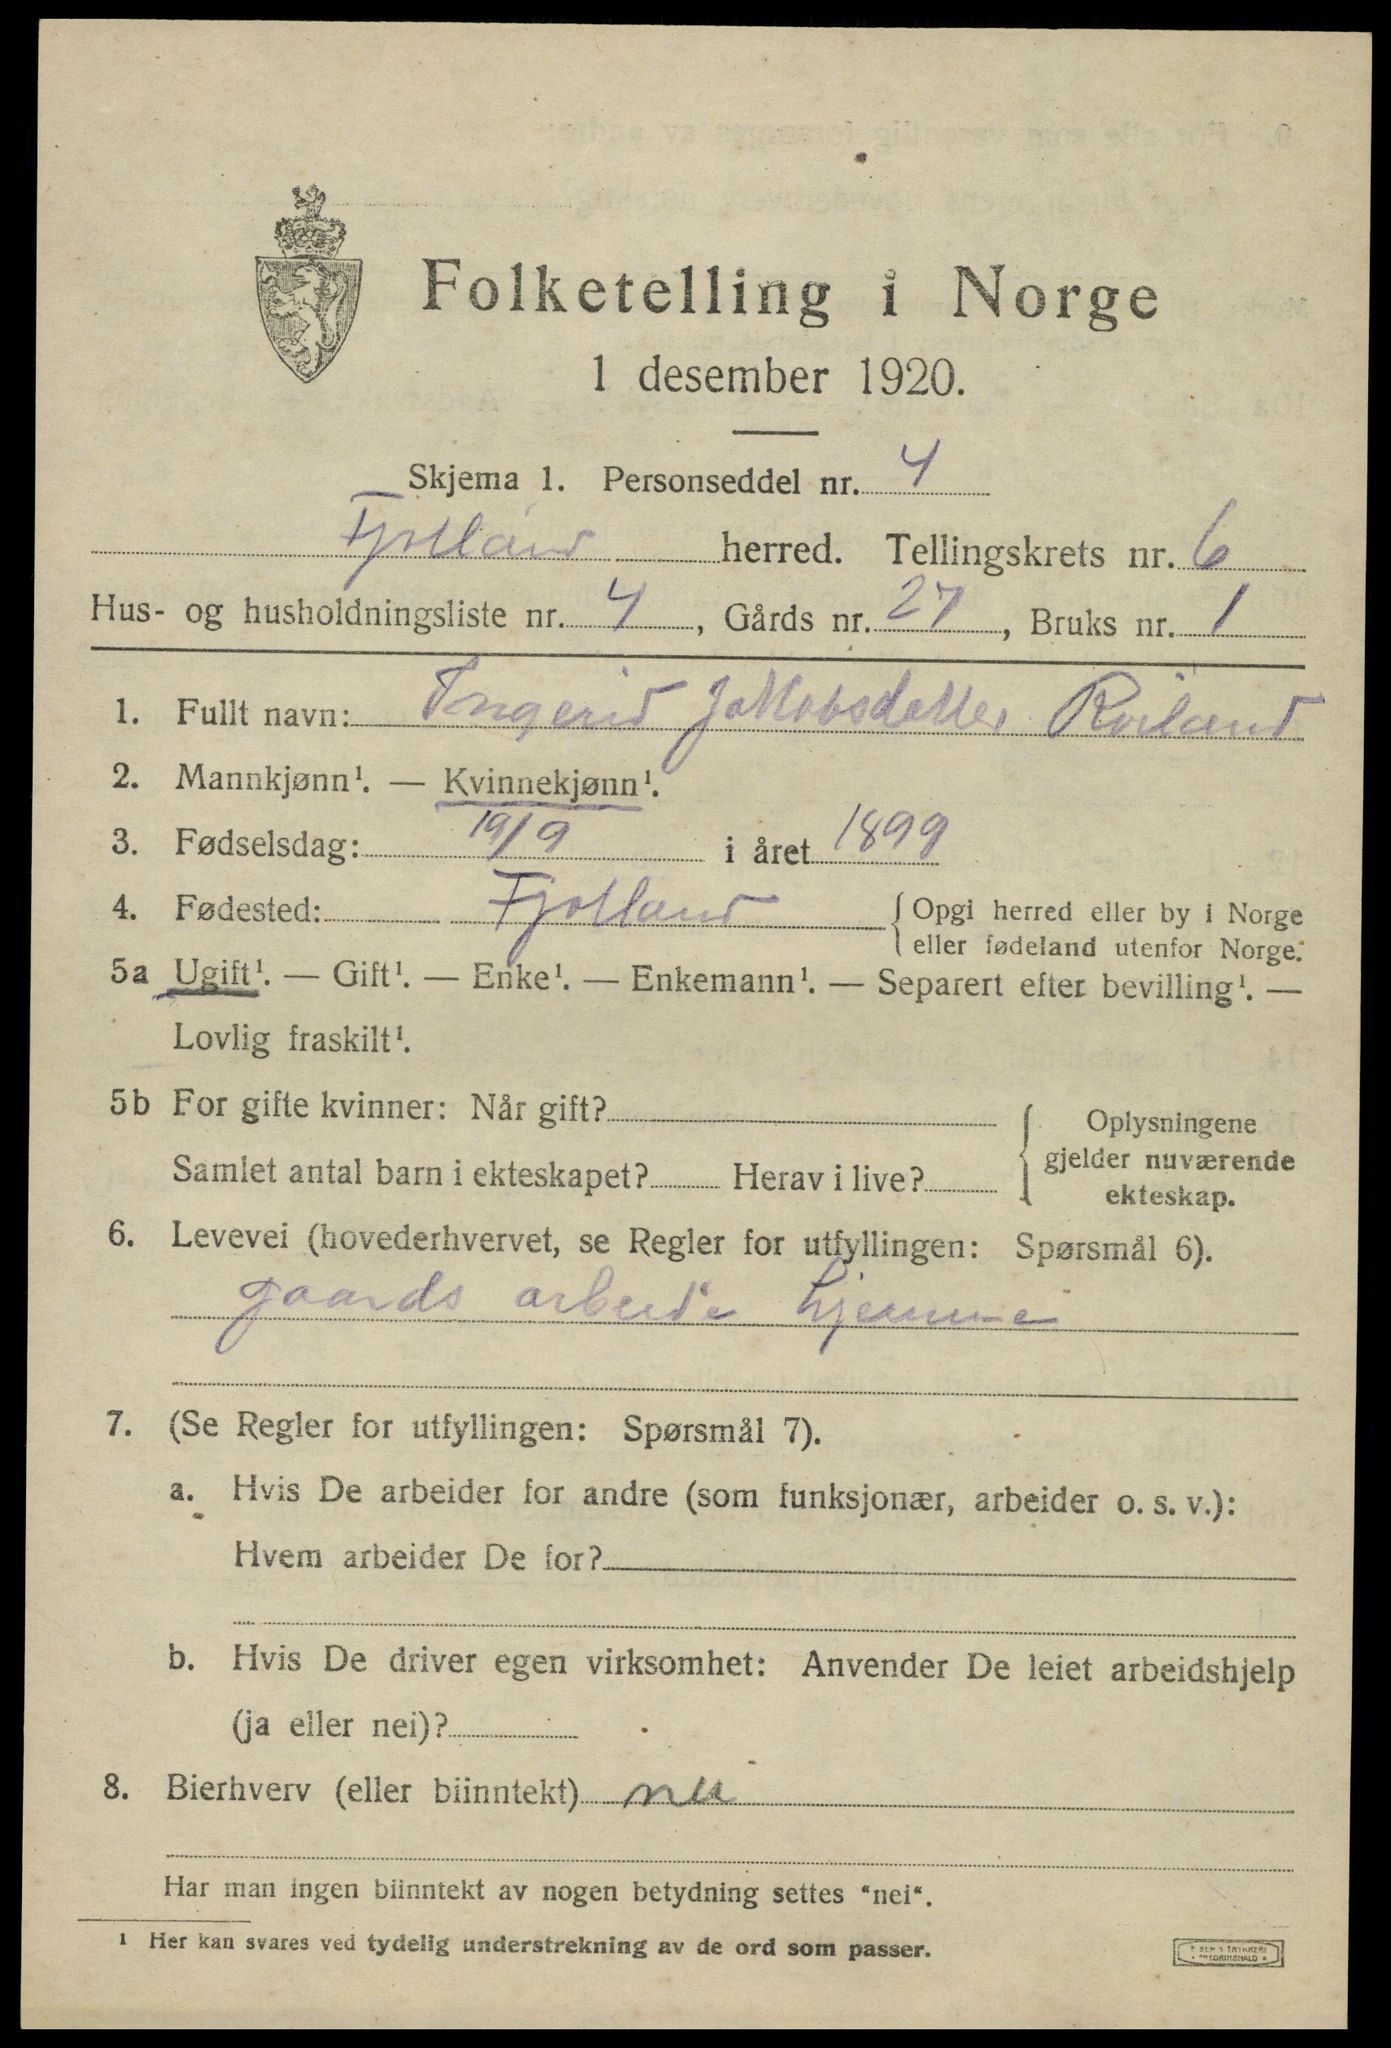 Folketelling i Norge
1 desember 1920.
Skjema 1. Personseddel nr. 4
Fjotland herred. Tellingskrets nr. 6
Hus- og husholdningsliste nr. 4, Gårds nr. 27, Bruks nr. 1
1. Fullt navn: Ingerid Jakobsdatter
2. Mannkjønn¹. — Kvinnekjønn¹.
3. Fødselsdag: 19/9 i året 1899
4. Fødested: Fjotland { Opgi herred eller by i Norge
eller fødeland utenfor Norge.
5a Ugift¹. — Gift¹. — Enke¹. — Enkemann¹. — Separert efter bevilling¹. —
Lovlig fraskilt¹.
5b For gifte kvinner: Når gift? { Oplysningene
gjelder nuværende
ekteskap.
Samlet antal barn i ekteskapet? Herav i live?
6. Levevei (hovederhvervet, se Regler for utfyllingen: Spørsmål 6).
gaards arbeide hjemme
7. (Se Regler for utfyllingen: Spørsmål 7).
a. Hvis De arbeider for andre (som funksjonær, arbeider o. s. v.):
Hvem arbeider De for?
b. Hvis De driver egen virksomhet: Anvender De leiet arbeidshjelp
(ja eller nei)?
8. Bierhverv (eller biinntekt) nei
Har man ingen biinntekt av nogen betydning settes "nei".
1 Her kan svares ved tydelig understrekning av de ord som passer.